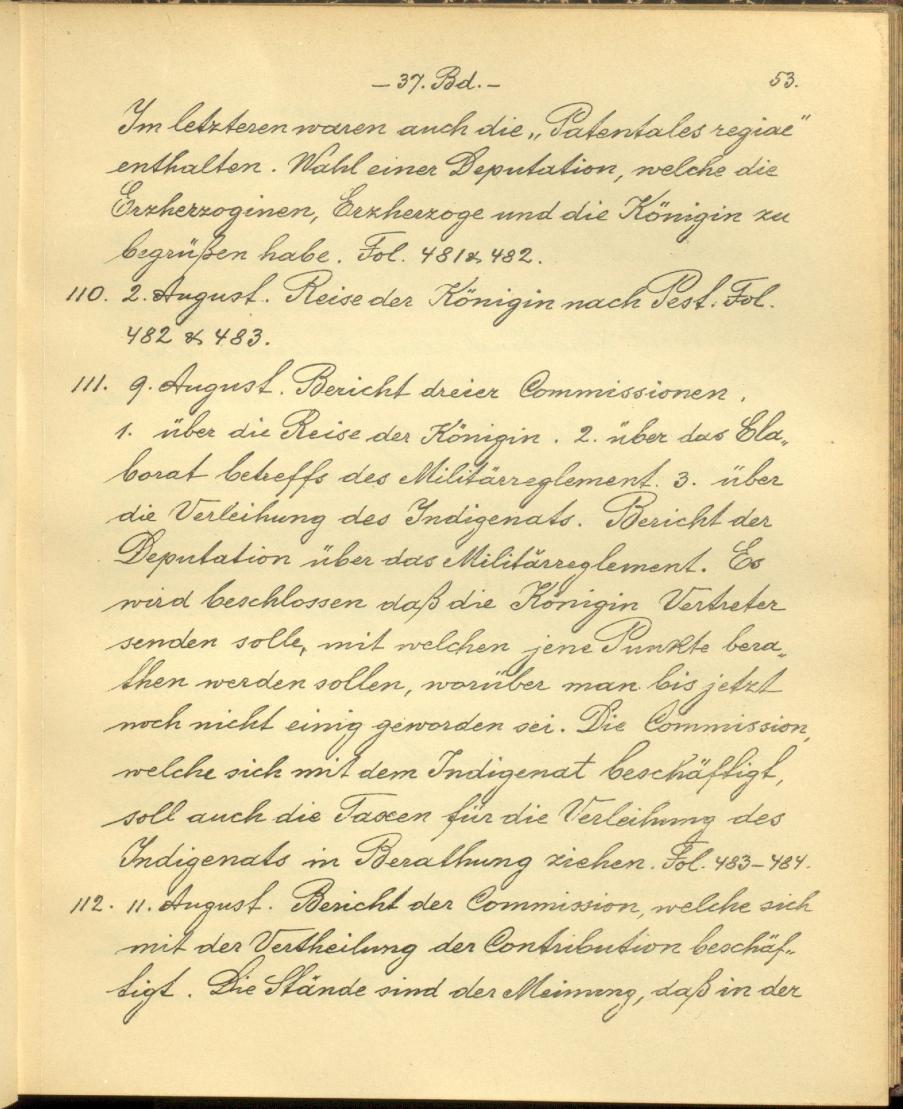 – 37. Bd. – 53.
Im letzteren waren auch die „Patentales regiae"
enthalten. Wahl einer Deputation, welche die
Erzherzoginen, Erzherzoge und die Königin zu
begrüßen habe. Fol. 481 & 482.
110. 2. August. Reise der Königin nach Pest. Fol.
482 & 483.
111. 9. August. Bericht dreier Commissionen.
1. über die Reise der Königin. 2. über das Ela„
borat betreffs des Militärreglement. 3. über
die Verleihung des Indigenats. Bericht der
Deputation über das Militärreglement. Es
wird beschlossen daß die Königin Vertreter
senden solle, mit welchen jene Punkte bera„
then werden sollen, worüber man bis jetzt
noch nicht einig geworden sei. Die Commission,
welche sich mit dem Indigenat beschäftigt,
soll auch die Taxen für die Verleihung des
Indigenats in Berathung ziehen. Fol. 483–484.
112. 11. August. Bericht der Commission, welche sich
mit der Vertheilung der Contribution beschäf„
tigt. Die Stände sind der Meinung, daß in der